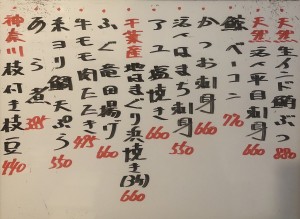 天然 生インド鯛ぶつ 880
天然 活〆平目刺身 660
鯨ベーコン 770
かつお刺身 660
活〆はまち刺身 550
アユ塩焼き 660
千葉産 地はまぐり浜焼き(3ヶ) 660
ふぐ竜田揚げ 660
牛モモ肉たたき 495
糸ヨリ鯛天ぷら 550
あら煮 385
神奈川 枝付き枝豆 440